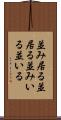 並み居る並
居る並みい
る並いる